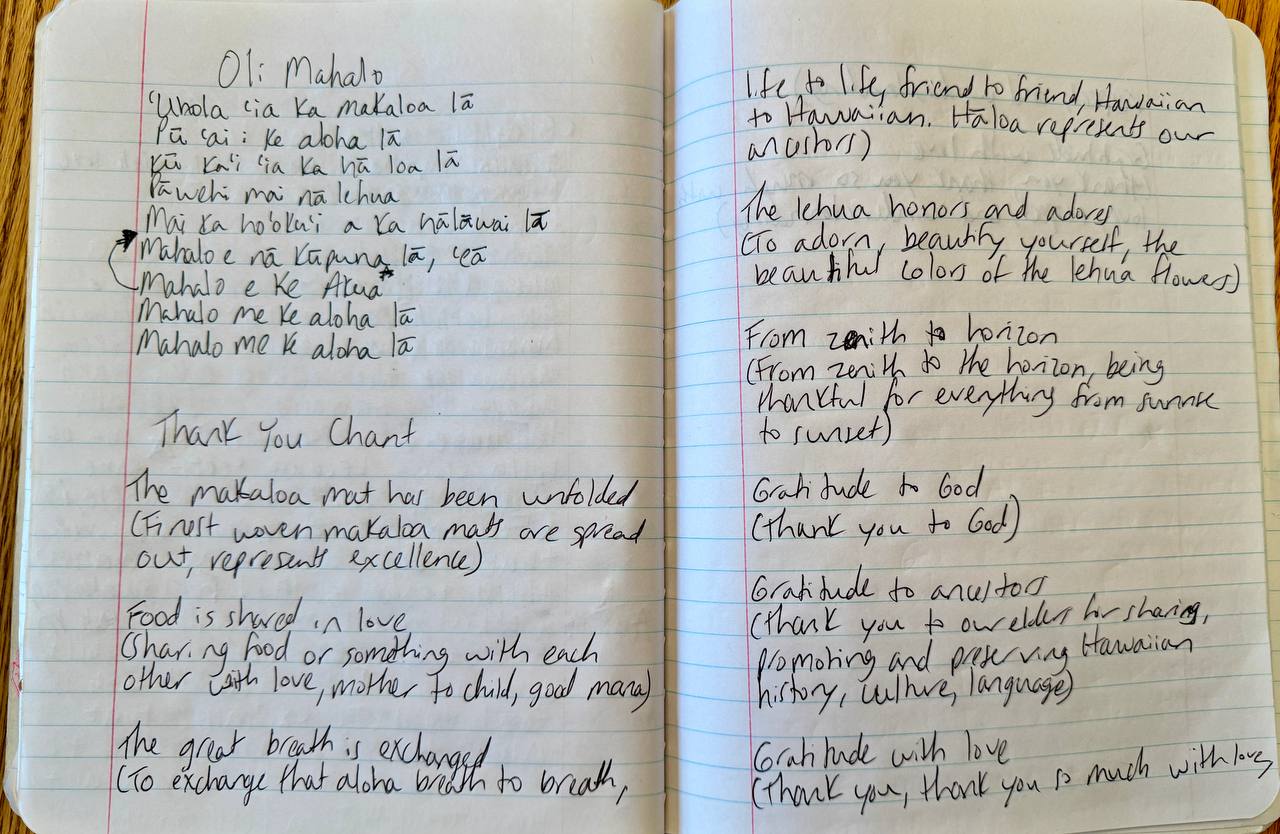 Oli Mahalo
ʻUhola ʻia ka makaloa lā
Pū ʻai i ke aloha lā
Kū kaʻi ʻia ka hā loa lā
Pāwehi mai nā lehua
Mai ka hoʻokuʻi a ka hālāwai lā
Mahalo e nā kūpuna lā, ʻeā
Mahalo e ke Akua*
Mahalo me ke aloha lā
Mahalo me ke aloha lā
Thank You Chant
The makaloa mat has been unfolded
(Finest woven makaloa mats are spread
out, represents excellence)
Food is shared in love
(Sharing food or something with each
other with love, mother to child, good mana)
The great breath is exchanged
(To exchange that aloha breath to breath,
life to life, friend to friend, Hawaiian
to Hawaiian. Hāloa represents our
ancestors)
The lehua honors and adores
(To adorn, beautify yourself, the
beautiful colors of the lehua flowers)
From zenith to horizon
(From zenith to the horizon, being
thankful for everything from sunrise
to sunset)
Gratitude to God
(Thank you to God)
Gratitude to ancestors
(Thank you to our elders for sharing,
promoting and preserving Hawaiian
history, culture, language)
Gratitude with love
(Thank you, thank you so much with love,